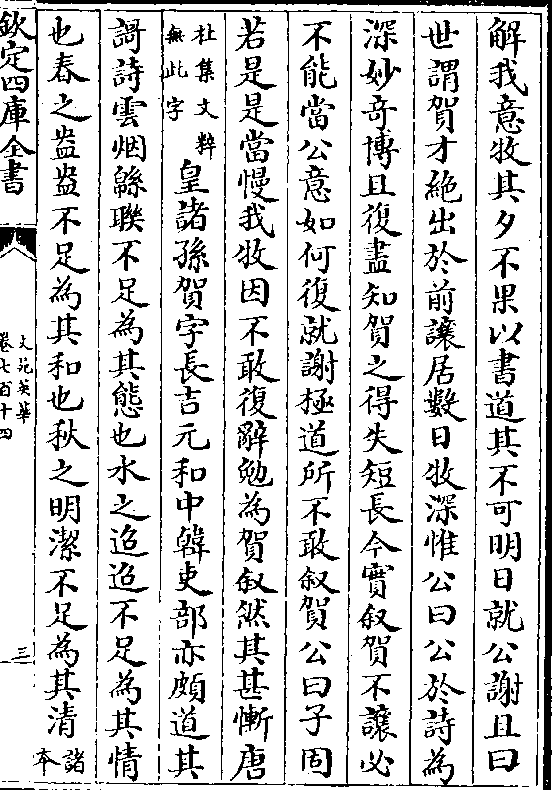 解我意牧其夕不果以書道其不可明日就公謝且曰
世謂賀才絶出於前讓居數日牧深惟公曰公於詩為
深妙奇博且復盡知賀之得失短長今實叙賀不讓必
不能當公意如何復就謝極道所不敢叙賀公曰子固
若是是當慢我牧因不敢復辭勉為賀叙然其甚慚唐
杜集文粹無此字皇諸孫賀字長吉元和中韓吏部亦頗道其
謌詩雲烟緜聯不足為其態也水之迢迢不足為其情
也春之盎盎不足為其和也秋之明潔不足為其清諸本
欽定四庫全書
文苑英華
卷七百十四
三